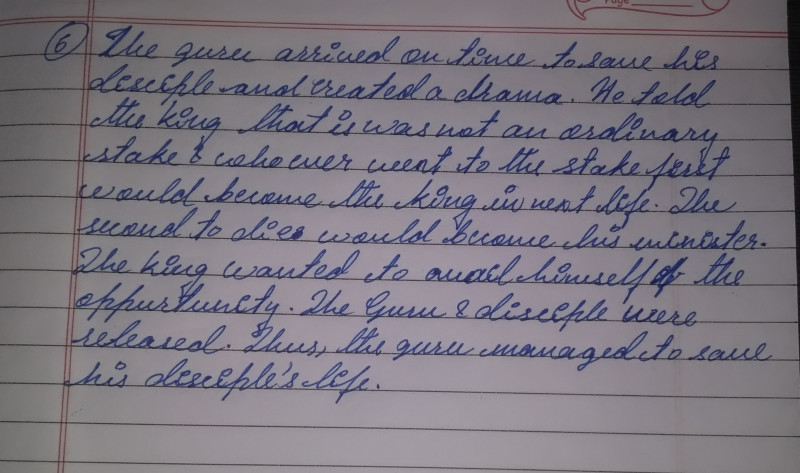 Page
⑥ The guru arrived on time to save his
disciple and created a drama. He told
the king that is was not an ordinary
stake & whoever went to the stake first
would become the king in next life. The
second to dies would become his minister.
The king wanted to avail himself of the
oppurtunity. The Guru & disciple were
released. Thus, the guru managed to save
his disciple's life.